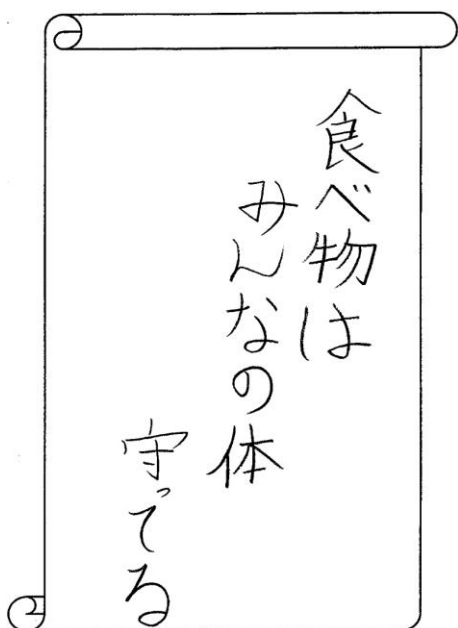 食べ物は
みんなの体
守ってる